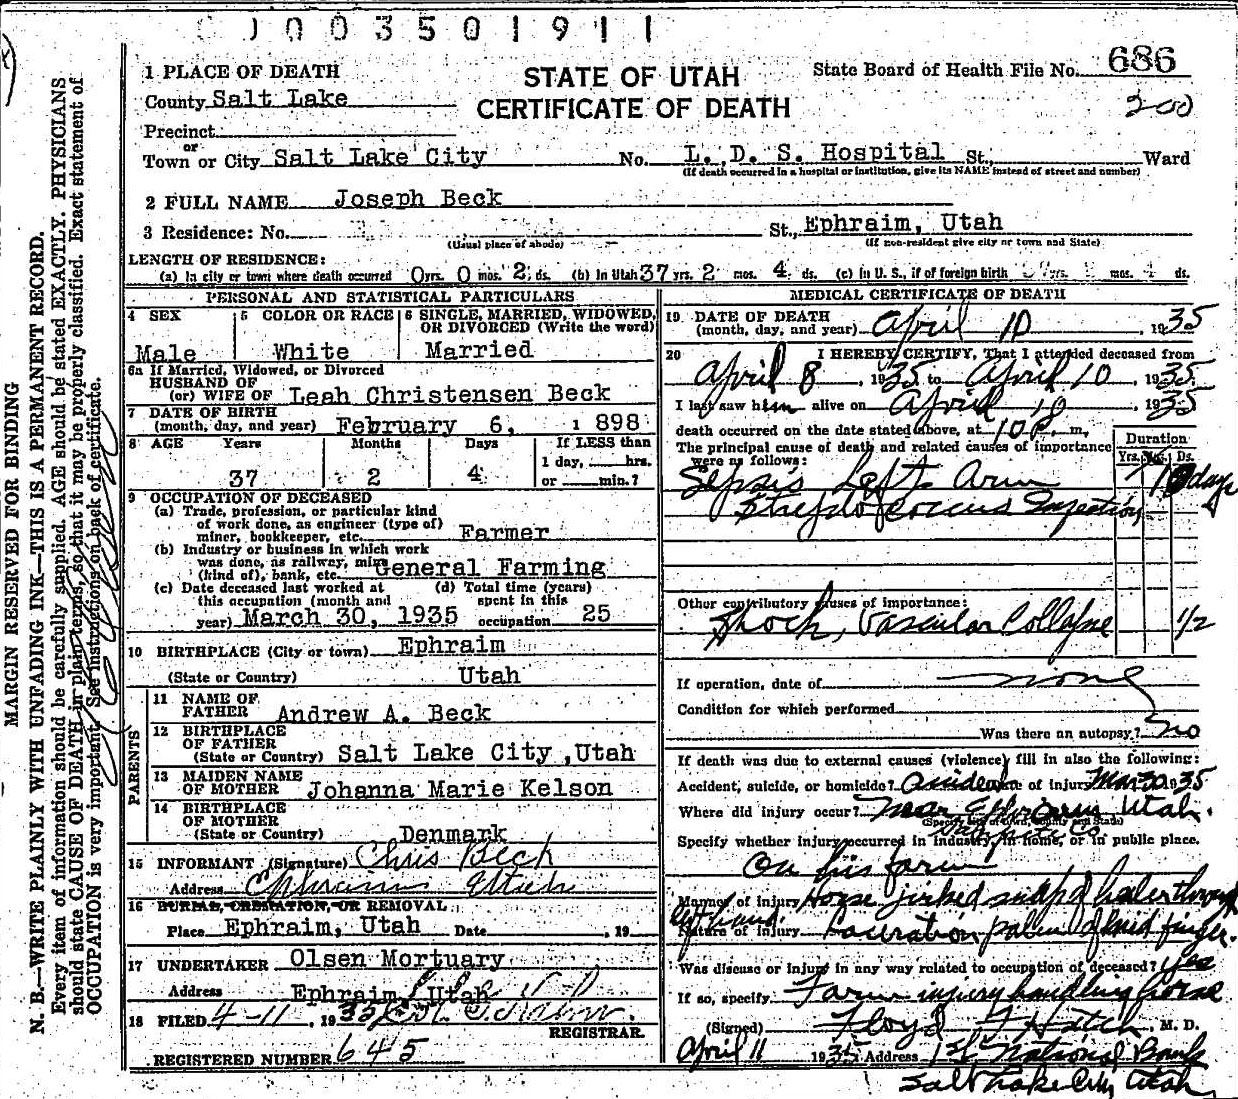 003501911
1 PLACE OF DEATH
STATE OF UTAH
CERTIFICATE OF DEATH
State Board of Health File No. 686
200
County Salt Lake
Precinct
or
Town or City Salt Lake City No. L. D. S. Hospital St., Ward
(If death occurred in a hospital or institution, give its NAME instead of street and number)
2 FULL NAME Joseph Beck
3 Residence: No. St., Ephraim, Utah
(Usual place of abode) (If non-resident give city or town and State)
LENGTH OF RESIDENCE:
(a) In city or town where death occurred 0 yrs. 0 mos. 2 ds. (b) In Utah 37 yrs. 2 mos. 4 ds. (c) In U. S., if of foreign birth yrs. mos. ds.
PERSONAL AND STATISTICAL PARTICULARS
4 SEX 5 COLOR OR RACE 6 SINGLE, MARRIED, WIDOWED, OR DIVORCED (Write the word)
Male White Married
6a If Married, Widowed, or Divorced
HUSBAND OF
(or) WIFE OF Leah Christensen Beck
7 DATE OF BIRTH
(month, day, and year) February 6, 1898
8 AGE Years Months Days If LESS than
1 day, hrs.
37 2 4 or min.?
9 OCCUPATION OF DECEASED
(a) Trade, profession, or particular kind
of work done, as engineer (type of)
miner, bookkeeper, etc. Farmer
(b) Industry or business in which work
was done, as railway, mine
(kind of), bank, etc. General Farming
(c) Date deceased last worked at (d) Total time (years)
this occupation (month and spent in this
year) March 30, 1935 occupation 25
10 BIRTHPLACE (City or town) Ephraim
(State or Country) Utah
PARENTS
11 NAME OF
FATHER Andrew A. Beck
12 BIRTHPLACE
OF FATHER
(State or Country) Salt Lake City, Utah
13 MAIDEN NAME
OF MOTHER Johanna Marie Kelson
14 BIRTHPLACE
OF MOTHER
(State or Country) Denmark
15 INFORMANT (Signature) Chris Beck
Address Ephraim Utah
16 BURIAL, CREMATION, OR REMOVAL
Place Ephraim, Utah Date , 19
17 UNDERTAKER Olsen Mortuary
Address Ephraim, Utah
18 FILED 4-11, 1935
REGISTRAR.
REGISTERED NUMBER 645
MEDICAL CERTIFICATE OF DEATH
19 DATE OF DEATH
(month, day, and year) April 10, 1935
20 I HEREBY CERTIFY, That I attended deceased from
April 8, 1935 to April 10, 1935
I last saw him alive on April 10, 1935
death occurred on the date stated above, at 10 P. m.
The principal cause of death and related causes of importance
were as follows:
Duration
Yrs. Mos. Ds.
Sepsis Left Arm 10 days
Streptococcus Injection
Other contributory causes of importance:
Shock, Vascular Collapse 1/2
If operation, date of none
Condition for which performed
Was there an autopsy? no
If death was due to external causes (violence) fill in also the following:
Accident, suicide, or homicide? Accident Date of injury Mar 30 1935
Where did injury occur? near Ephraim Utah.
(Specify city or town, county and State)
Sanpete Co
Specify whether injury occurred in industry, in home, or in public place.
On his farm
Manner of injury Horse jerked snap of halter through
left hand.
Nature of injury Laceration palm of mid finger.
Was disease or injury in any way related to occupation of deceased? yes
If so, specify Farm injury handling horse
(Signed) Floyd F Hatch, M. D.
April 11 1935 Address 1st National Bank
Salt Lake City Utah
MARGIN RESERVED FOR BINDING
N. B.—WRITE PLAINLY WITH UNFADING INK—THIS IS A PERMANENT RECORD.
Every item of information should be carefully supplied. AGE should be stated EXACTLY. PHYSICIANS
should state CAUSE OF DEATH in plain terms, so that it may be properly classified. Exact statement of
OCCUPATION is very important. See instructions on back of certificate.